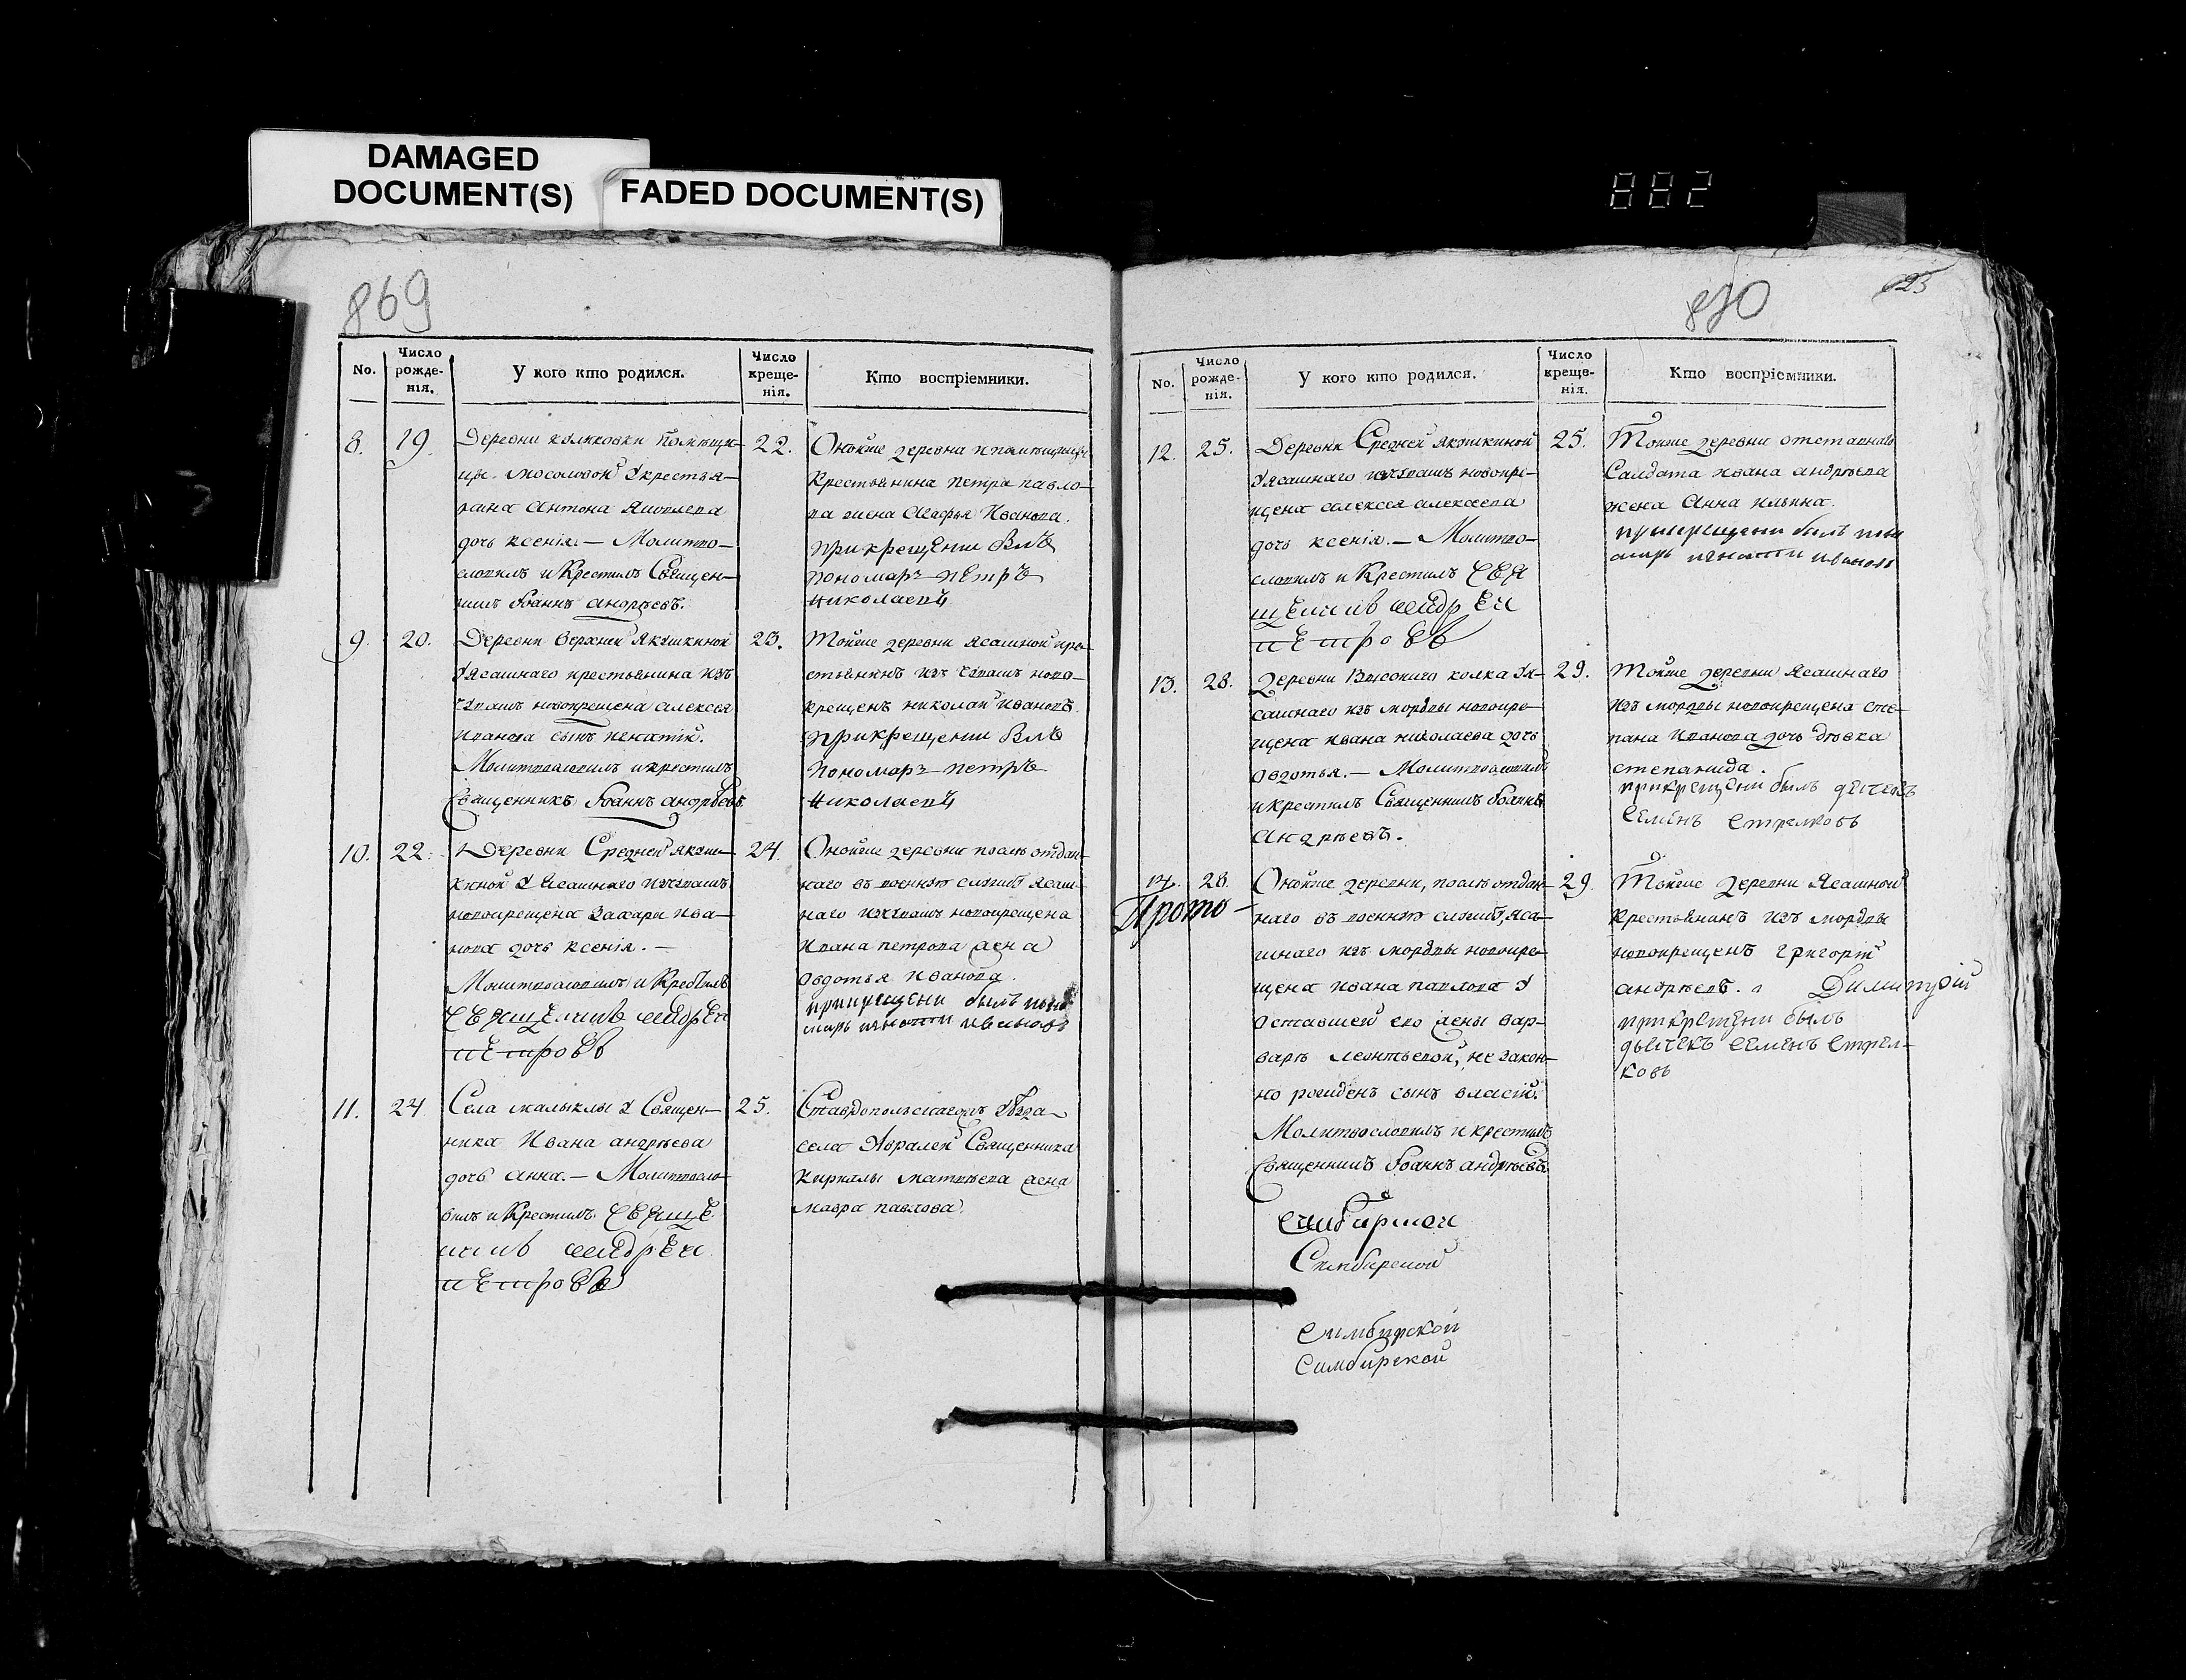 DAMAGED
DOCUMENT(S)
FADED DOCUMENT(S)
882
869
No.
Число
рожде-
нія.
У кого кто родился.
Число
креще-
нія.
Кто воспріемники.
8.
19.
Деревни куликовки помѣщи-
цы Мосоловой у крестья-
нина Антона Яковлева
дочь ксенія. — Молитво-
словилъ и Крестилъ Священ-
никъ Іоаннъ андрѣевъ.
22.
Оной же деревни помѣщицы
Крестьянина петра павло-
ва жена Агафья Иванова.
при крещении былъ
пономарь петръ
николаевъ
9.
20.
Деревни Верхней Якушкиной
у Ясашнаго крестьянина изъ
чувашъ новокрещена алексея
Иванова сынъ игнатій.
Молитвословилъ и крестилъ
Священникъ Іоаннъ андрѣевъ
23.
Той же деревни Ясашной кре-
стьянинъ изъ чувашъ ново-
крещенъ николай Ивановъ.
при крещении былъ
пономарь петръ
николаевъ
10.
22.
Деревни Средней якуш-
киной у Ясашнаго изъ чувашъ
новокрещена Захара Ива-
нова дочь ксенія. —
Молитвословилъ и Крестилъ
Священникъ андрей
петровъ
24.
Оной же деревни послѣ отдан-
наго въ военную службу ясаш-
наго изъ чувашъ новокрещена
Ивана петрова жена
Овдотья Иванова.
при крещени былъ поно
марь игнатий ивановъ
11.
24.
Села малыклы у Священ-
ника Ивана андрѣева
дочь анна. — Молитвосло-
вилъ и Крестилъ Священ
никъ андрей
петровъ
25.
Ставропольскаго уѣзда
села Священника
Кирилы матвѣева жена
мавра павлова.
870
No.
Число
рожде-
нія.
У кого кто родился.
Число
креще-
нія.
Кто воспріемники.
12.
25.
Деревни Средней якушкиной
у Ясашнаго изъ чувашъ новокре-
щена алексея алексеева
дочь ксенія. — Молитво-
словилъ и Крестилъ Свя
щенникъ андрей
петровъ
25.
Той же деревни отставнаго
Салдата ивана андрѣева
жена Анна Ильина.
при крещени былъ поно
марь игнатий ивановъ
13.
28.
Деревни Высокаго колка у Я-
сашнаго изъ мордвы новокре-
щена ивана николаева дочь
Овдотья. — Молитвословилъ
и крестилъ Священникъ Іоаннъ
Андрѣевъ.
29.
Той же деревни Ясашнаго
изъ мордвы новокрещена сте-
пана Иванова дочь дѣвка
степанида.
при крещени былъ дьечекъ
семенъ стрелковъ
14.
28.
Прото-
Оной же деревни, послѣ отдан-
наго въ военную службу, яса-
шнаго изъ мордвы новокре-
щена ивана павлова у
оставшей его жены вар-
вары леонтьевой, не закон-
но рожденъ сынъ власій.
Молитвословилъ и крестилъ
Священникъ Іоаннъ андрѣевъ
29.
Той же деревни Ясашной
крестьянинъ изъ мордвы
новокрещенъ григорій
андрѣевъ. Димитрій
при крещени былъ
дьечекъ семенъ стрел-
ковъ
симбирской
Симбирской
Симбирской
Симбирской